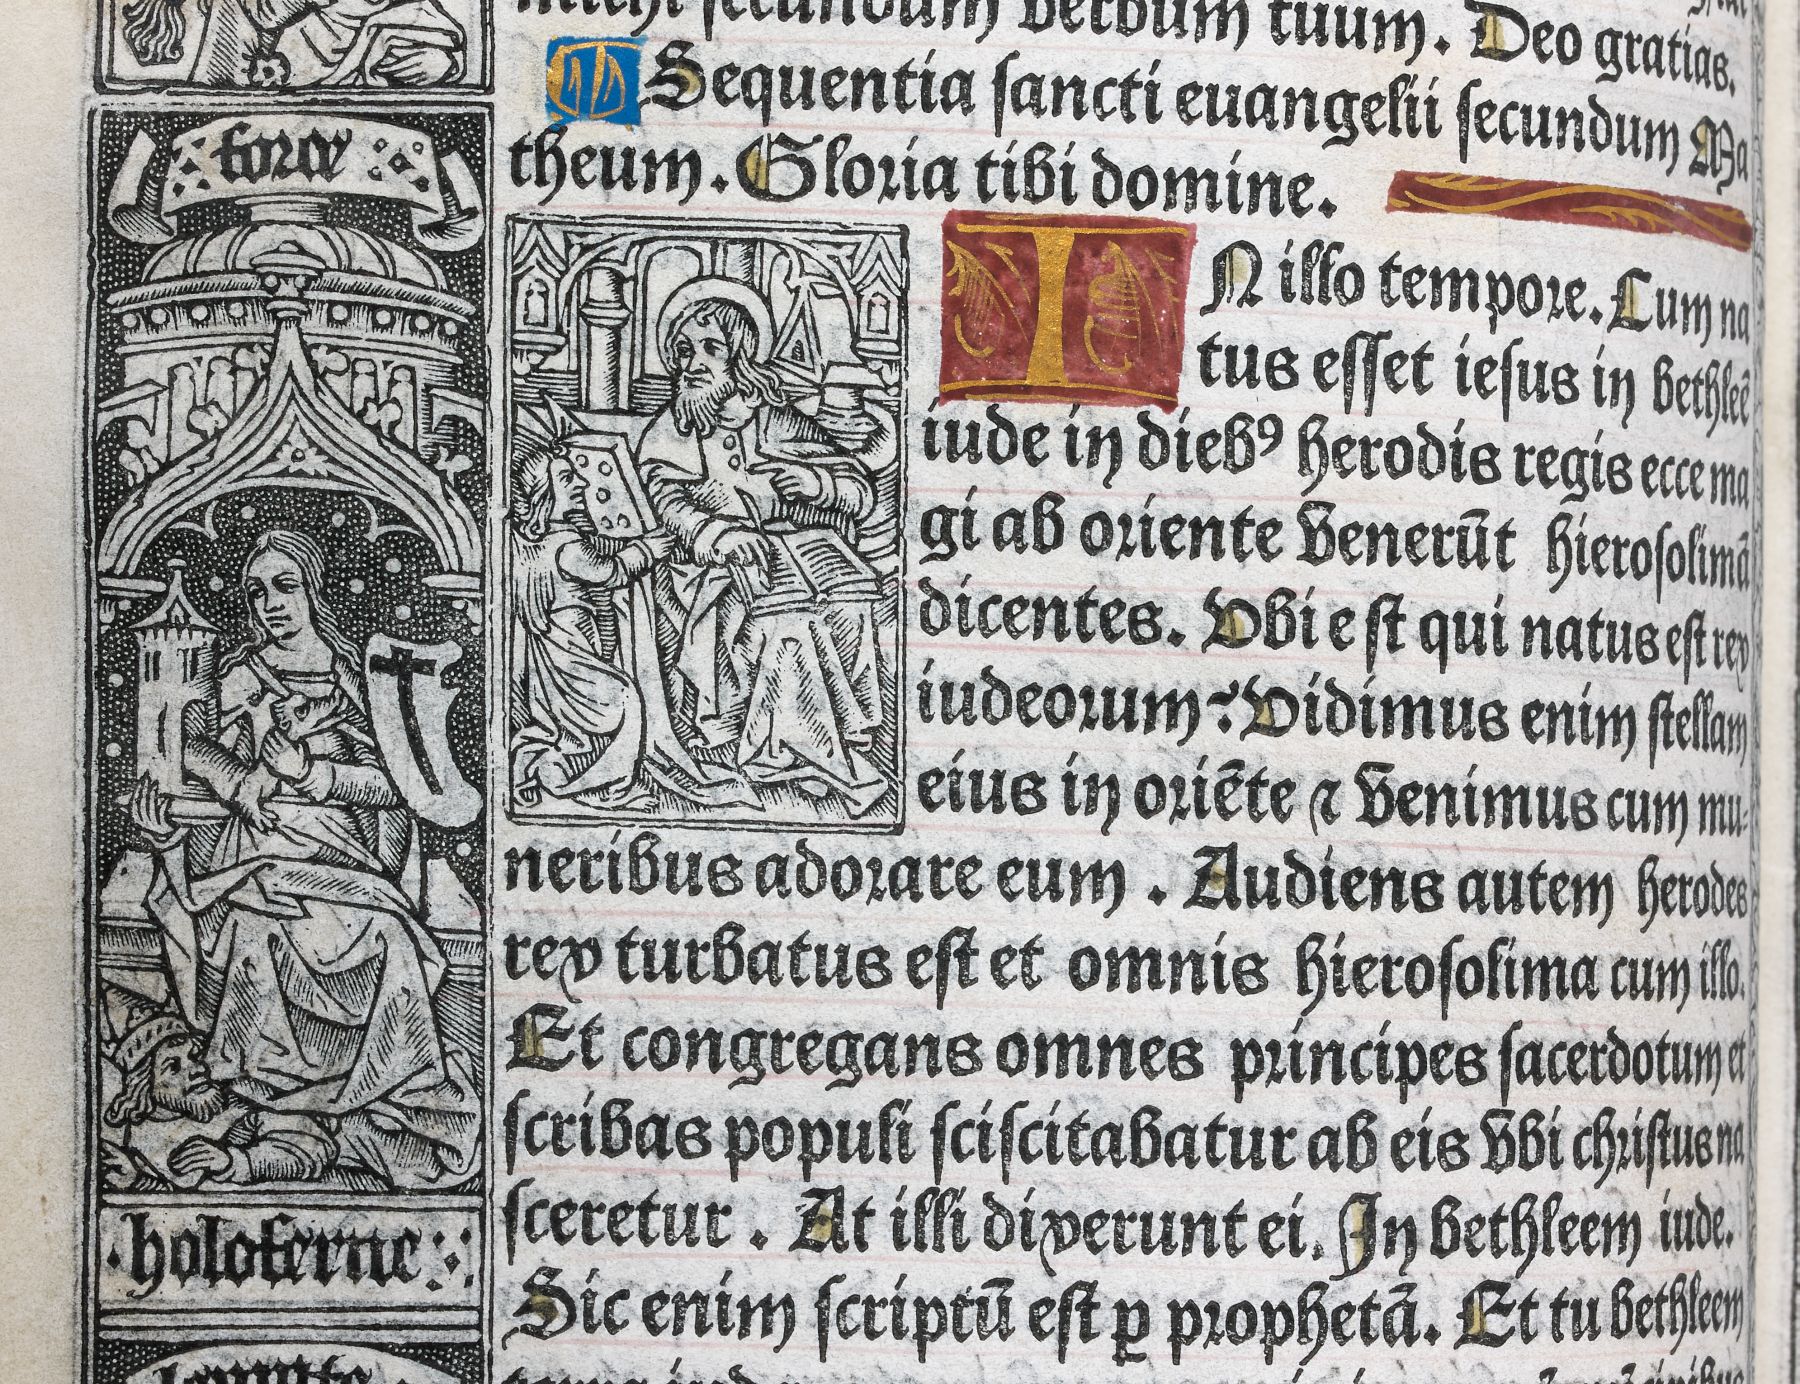 michi secundum verbum tuum. Deo gratias.
Sequentia sancti euangelii secundum Ma
theum. Gloria tibi domine.
IN illo tempore. Cum na
tus esset iesus in bethleē
iude in dieb9 herodis regis ecce ma
gi ab oriente venerūt hierosolimā
dicentes. Vbi est qui natus est rex
iudeorum? Vidimus enim stellam
eius in oriēte ⁊ venimus cum mu-
neribus adorare eum. Audiens autem herodes
rex turbatus est et omnis hierosolima cum illo.
Et congregans omnes principes sacerdotum et
scribas populi sciscitabatur ab eis vbi christus na
sceretur. At illi dixerunt ei. In bethleem iude.
Sic enim scriptū est ꝑ prophetā. Et tu bethleem
force
holoferne